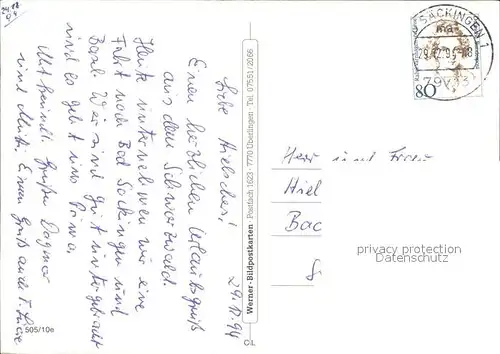 29.12.94
Liebe Hielscher!
Einen herzlichen Urlaubsgruß
aus dem Schwarzwald.
Heute unternehmen wir eine
Fahrt nach Bad Säckingen und
Basel. Wir sind gut untergebracht
und es geht uns prima.
Mit freundl. Grüßen Dagmar
und Einen Gruß auch
505/10e
Werner-Bildpostkarten · Postfach 1623 · 7770 Überlingen · Tel. 07551/2066
CL
SÄCKINGEN 1
80
Herr und Frau
Hiel
Bac
8
privacy protection
Datenschutz